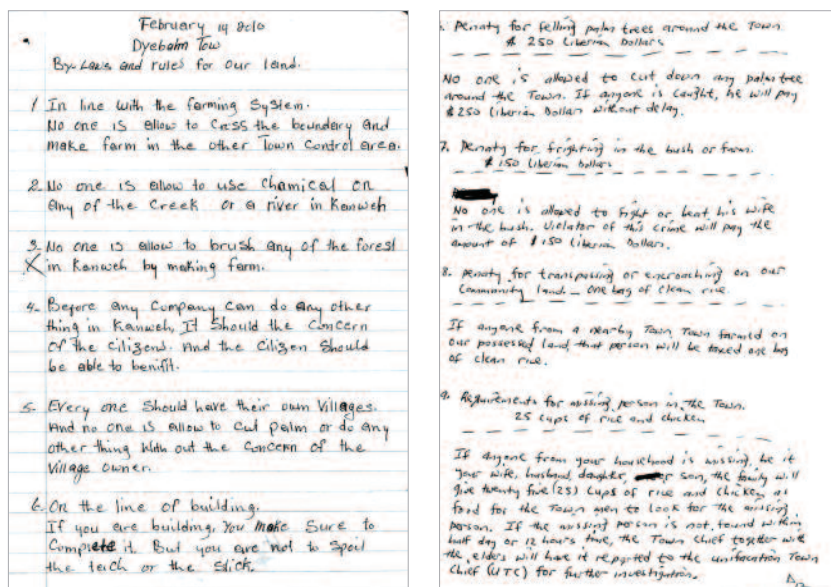 February 14 2010
Dyebalm Tow
By-Laws and rules for our land.
1 In line with the farming System.
No one is allow to Cross the boundary and
make farm in the other Town Control area.
2. No one is allow to use Chamical on
any of the Creek or a river in Kanweh
3. No one is allow to brush any of the forest
in Kanweh by making farm.
4. Before any Company Can do any other
thing in Kanweh, It Should the Concern
Of the Citizens. And the Citizen Should
be able to benifit.
5. Every one Should have their own Villages.
And no one is allow to Cut palm or do any
other thing With out the Concern of the
Village owner.
6. On the line of building.
If you are building, You make Sure to
Complete it. But you are not to Spoil
the tach or the Stick.
. Penaty for felling palm trees around the Town
$ 250 Liberian Dollars
No one is allowed to cut down any palm tree
around the Town. If anyone is caught, he will pay
$250 Liberian Dollar without delay.
7. Penaty for frighting in the bush or farm.
$ 150 Liberian Dollars
No one is allowed to fight or beat his wife
in the bush. Violator of this crime will pay the
amount of $150 Liberian Dollars.
8. penaty for transpossing or encroaching on our
Community land - One bag of clean rice.
If anyone from a nearby Town Town farmed on
our possessed land, that person will be taxed one bag
of clean rice.
9. Requirements for missing person in the Town.
25 cups of rice and chicken
If anyone from your household is missing, be it
your wife, husband, daughter, or son, the family will
give twenty five (25) Cups of rice and chicken as
food for the Town men to look for the missing
person. If the missing person is not found within
half day or 12 hours time, the Town Chief together with
the elders will have it reported to the unification Town
Chief (UTC) for further investigation.